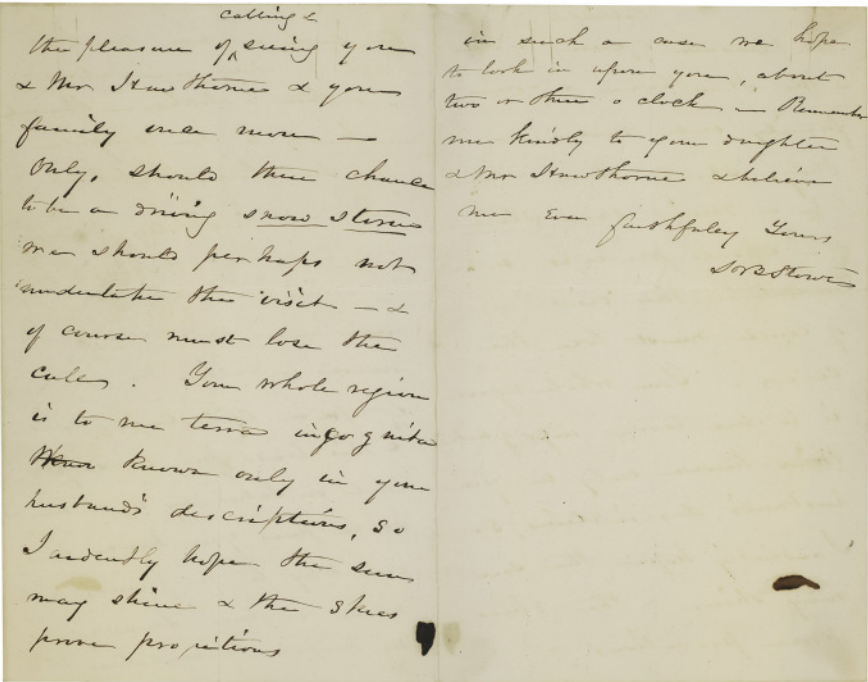 calling &
the pleasure of ^ seeing you
& Mr Hawthorne & your
family once more —
only, should there chance
to be a driving snow storm
we should perhaps not
undertake the visit — &
of course must lose the
call. Your whole region
is to me terra incognita
known only in your
husband's descriptions, so
I ardently hope the sun
may shine & the skies
prove propitious
in such a case we hope
to look in upon you, about
two or three o clock — Remember
me kindly to your daughter
& Mr Hawthorne & believe
me Ever faithfuley Yours
HBStowe